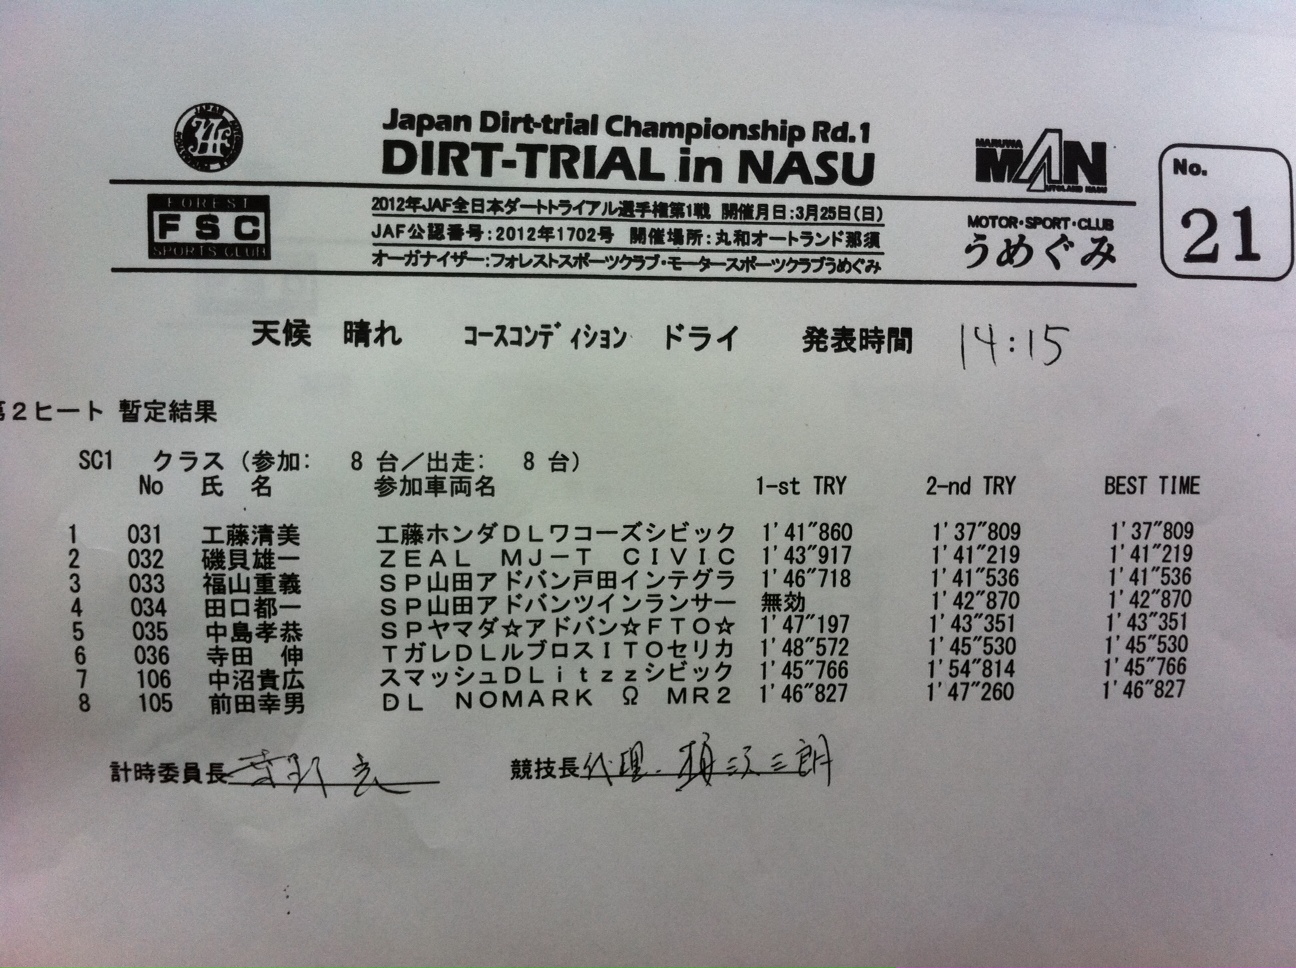 Japan Dirt-trial Championship Rd.1
DIRT-TRIAL in NASU
MARUWA
MAN
AUTOLAND NASU
No.
21
FOREST
FSC
SPORTS CLUB
2012年JAF全日本ダートトライアル選手権第1戦 開催月日:3月25日(日)
JAF公認番号:2012年1702号 開催場所:丸和オートランド那須
オーガナイザー:フォレストスポーツクラブ・モータースポーツクラブうめぐみ
MOTOR・SPORT・CLUB
うめぐみ
天候 晴れ コースコンディション ドライ 発表時間 14:15
第2ヒート 暫定結果
SC1 クラス (参加: 8 台/出走: 8 台)
No 氏 名 参加車両名 1-st TRY 2-nd TRY BEST TIME
1 031 工藤清美 工藤ホンダDLワコーズシビック 1'41"860 1'37"809 1'37"809
2 032 磯貝雄一 ZEAL MJ-T CIVIC 1'43"917 1'41"219 1'41"219
3 033 福山重義 SP山田アドバン戸田インテグラ 1'46"718 1'41"536 1'41"536
4 034 田口都一 SP山田アドバンツインランサー 無効 1'42"870 1'42"870
5 035 中島孝恭 SPヤマダ☆アドバン☆FTO☆ 1'47"197 1'43"351 1'43"351
6 036 寺田 伸 TガレDLルブロスITOセリカ 1'48"572 1'45"530 1'45"530
7 106 中沼貴広 スマッシュDLitzzシビック 1'45"766 1'54"814 1'45"766
8 105 前田幸男 DL NOMARK Ω MR2 1'46"827 1'47"260 1'46"827
計時委員長 競技長 代理